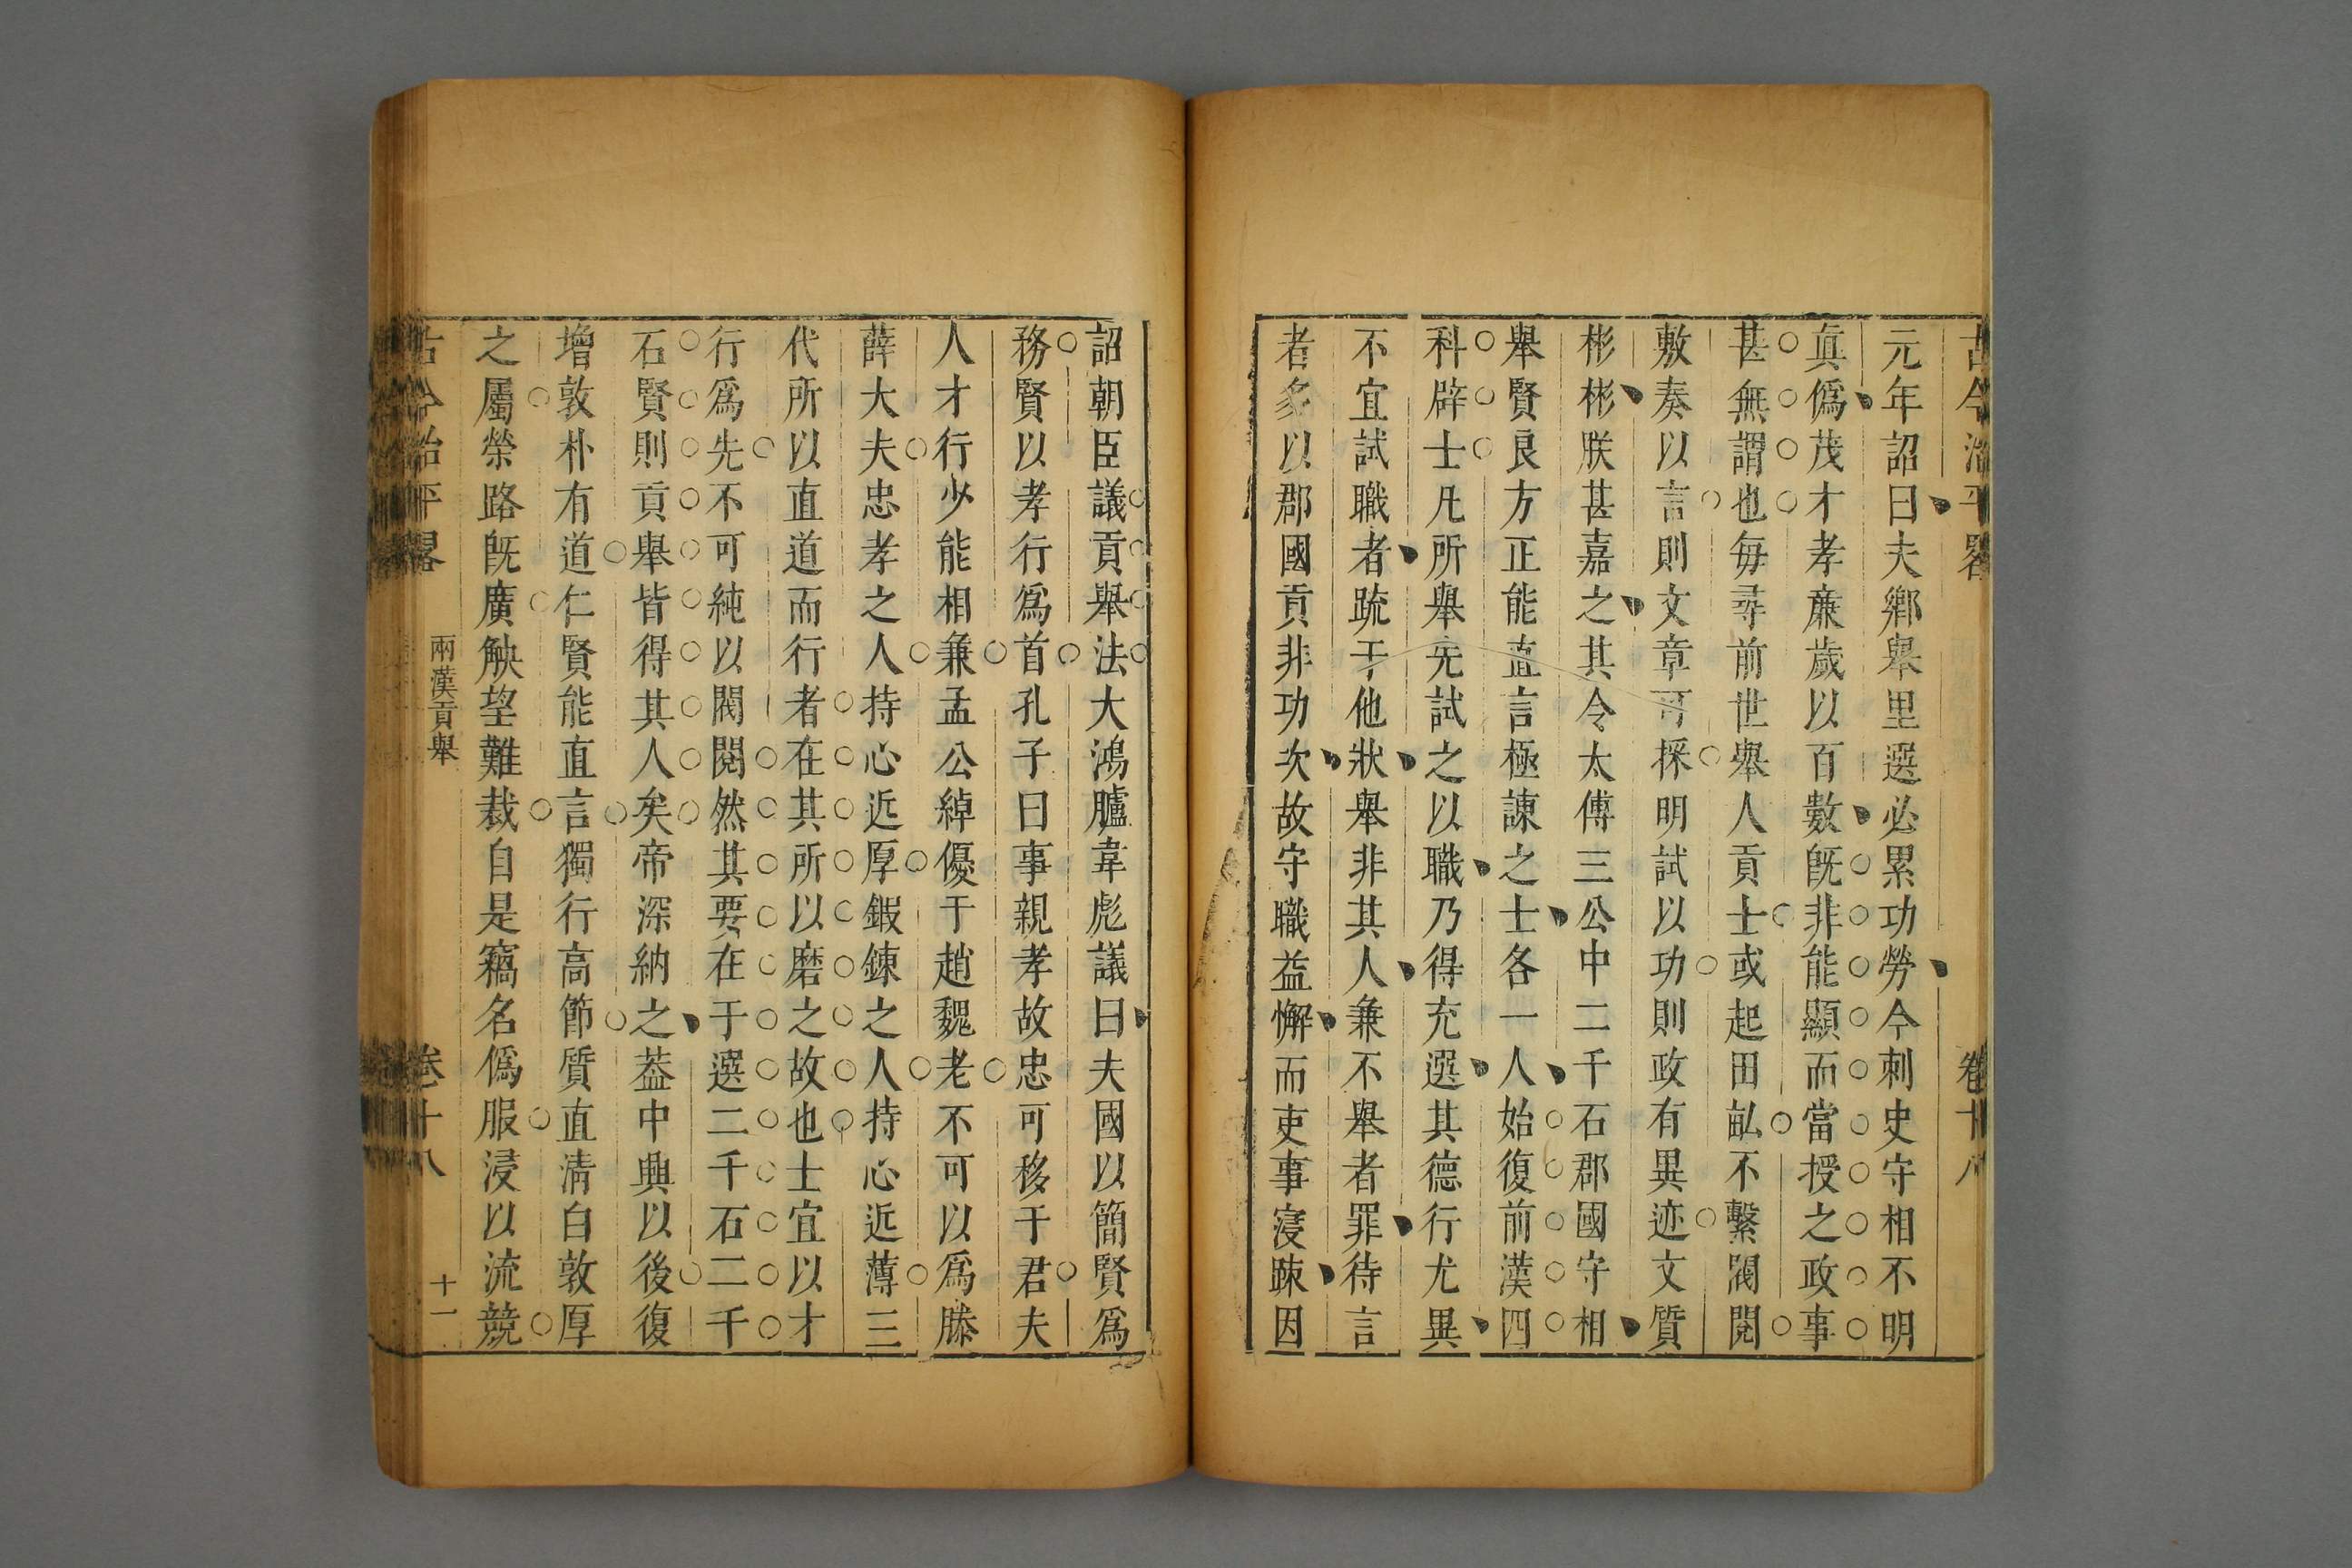 古今治平畧 卷十八
元年詔曰夫鄉舉里選必累功勞今刺史守相不明
眞僞茂才孝廉歲以百數旣非能顯而當授之政事
甚無謂也每尋前世舉人貢士或起田畝不繫閥閱
敷奏以言則文章可採明試以功則政有異迹文質
彬彬朕甚嘉之其令太傅三公中二千石郡國守相
舉賢良方正能直言極諫之士各一人始復前漢四
科辟士凡所舉先試之以職乃得充選其德行尤異
不宜試職者疏于他狀舉非其人兼不舉者罪待言
者多以郡國貢非功次故守職益懈而吏事寖踈因
詔朝臣議貢舉法大鴻臚韋彪議曰夫國以簡賢爲
務賢以孝行爲首孔子曰事親孝故忠可移于君夫
人才行少能相兼孟公綽優于趙魏老不可以爲滕
薛大夫忠孝之人持心近厚鍜鍊之人持心近薄三
代所以直道而行者在其所以磨之故也士宜以才
行爲先不可純以閥閱然其要在于選二千石二千
石賢則貢舉皆得其人矣帝深納之葢中興以後復
增敦朴有道仁賢能直言獨行高節質直清白敦厚
之屬榮路旣廣觖望難裁自是竊名僞服浸以流競
古今治平畧 兩漢貢舉 卷十八 十一